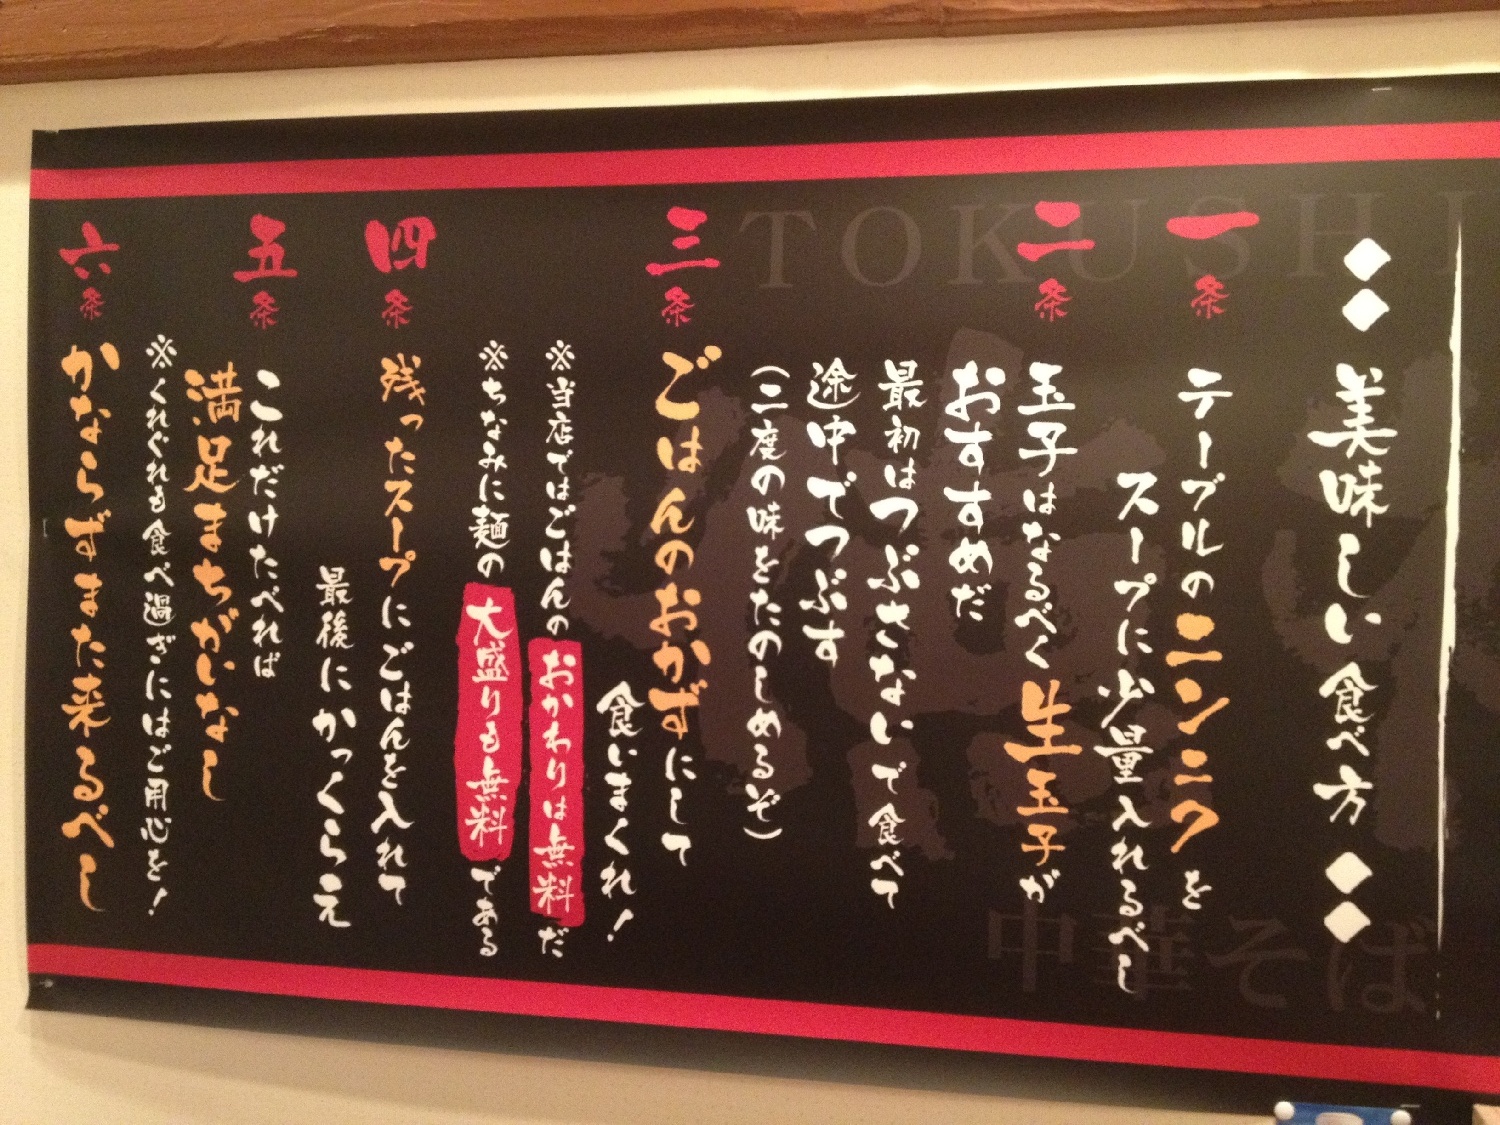 ◆◆美味しい食べ方◆◆
一条
テーブルのニンニクを
スープに少量入れるべし
二条
玉子はなるべく生玉子が
おすすめだ
最初はつぶさないで食べて
途中でつぶす
(二度の味をたのしめるぞ)
三条
ごはんのおかずにして
食いまくれ!
※当店ではごはんのおかわりは無料だ
※ちなみに麺の大盛りも無料である
四条
残ったスープにごはんを入れて
最後にかっくらえ
五条
これだけたべれば
満足まちがいなし
※くれぐれも食べ過ぎにはご用心を!
六条
かならずまた来るべし
TOKUSHI
中華そば